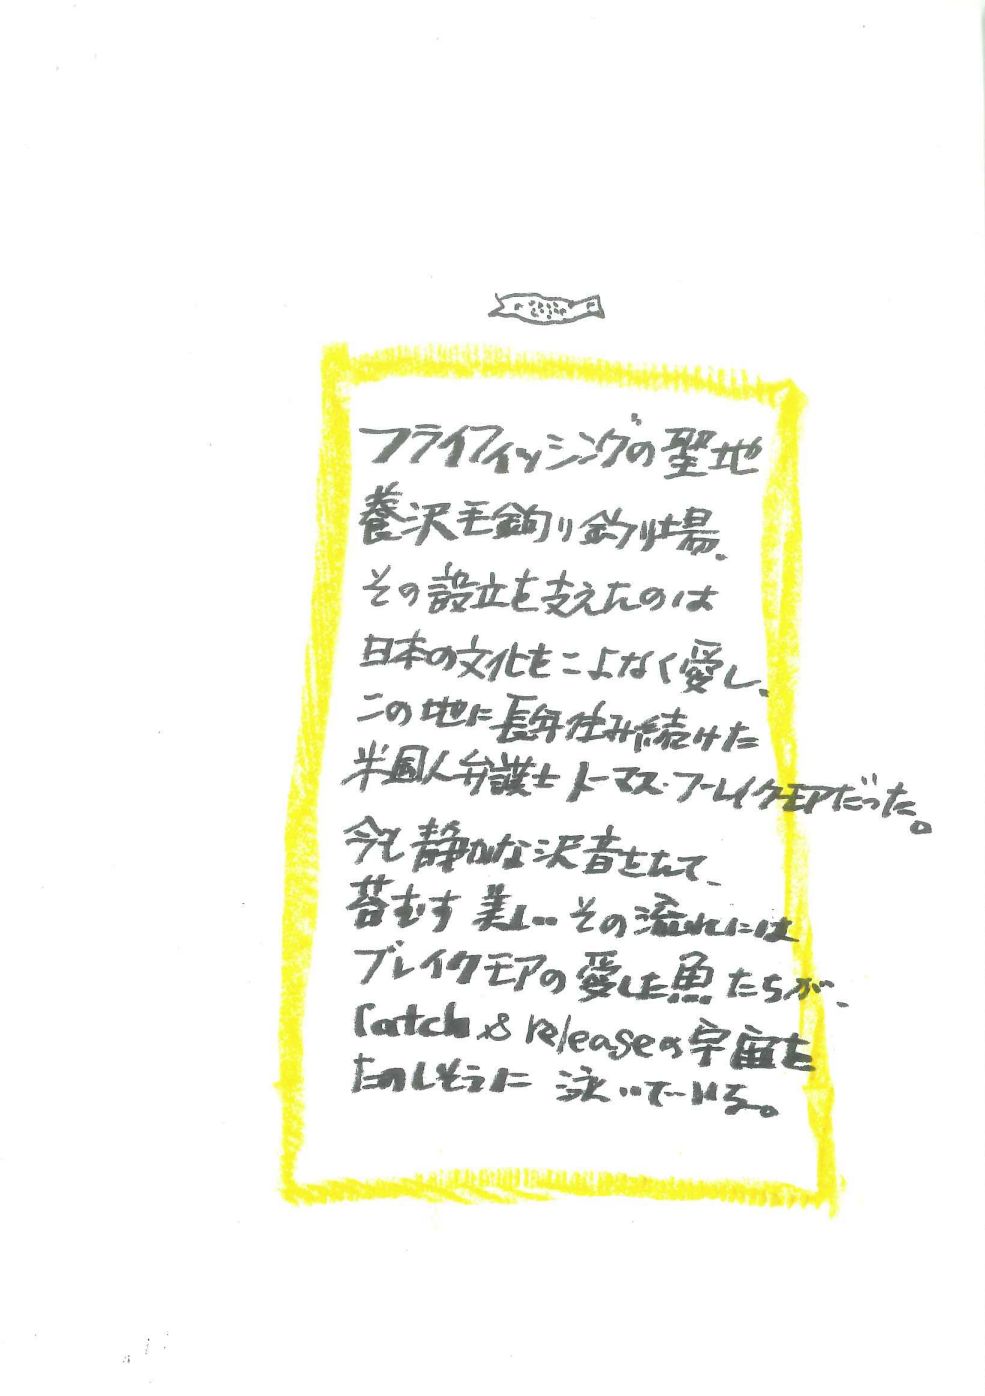 フライフィッシングの聖地
養沢毛鉤り釣り場、
その設立を支えたのは
日本の文化をこよなく愛し、
この地に長年住み続けた
米国人弁護士トーマス・ブレイクモアだった。
今も静かな沢音をたて、
苔むす美しいその流れには
ブレイクモアの愛した魚たちが、
catch & releaseの宇宙を
たのしそうに泳いでいる。